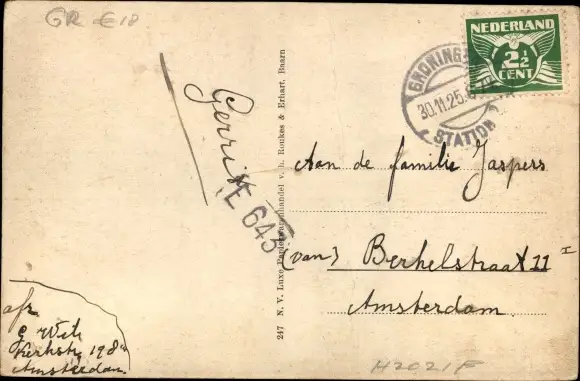 GR €18
NEDERLAND
2½
CENT
GRONINGEN
30.11.25.
STATION
Gerrit
E 645
Aan de familie Jaspers
(van) Berkelstraat 11 I
Amsterdam.
247 N. V. Luxe Papierwarenhandel v. h. Roukes & Erhart, Baarn
afz
G Wit
Kerkstr 198
Amsterdam
H2021F